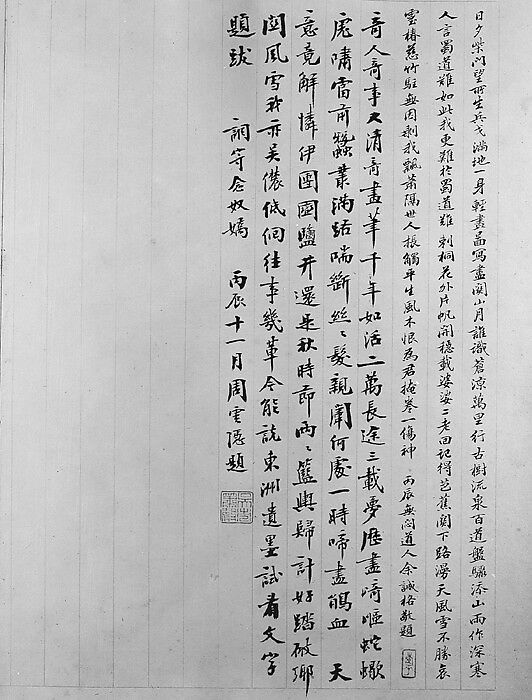 日夕柴門望所生兵戈滿地一身輕畫圖寫盡關山月誰識蒼涼萬里行古樹流泉百道盤驟添山雨作深寒
人言蜀道難如此我更難於蜀道難刺桐花外片帆開穩載婆娑二老回記得芭蕉關下路漫天風雪不勝哀
雲椿慈竹駐無因剩我飄蕭隔世人振觸平生風木恨為君掩卷一傷神 丙辰無悶道人余誠格敬題
奇人奇事又清奇畫筆千年如活二萬長途三載夢歷盡崎嶇蛇蠍
虎嘯雷前蠶叢滿路喘斷絲絲髮親闈何處一時啼盡鵑血 天
意竟解憐伊團圞鹽井還是秋時節兩兩籃輿歸計好踏破鄉
關風雪我亦吳儂低佪往事幾輩今能說東洲遺墨試看文字
題跋 調寄念奴嬌 丙辰十一月周雲隱題